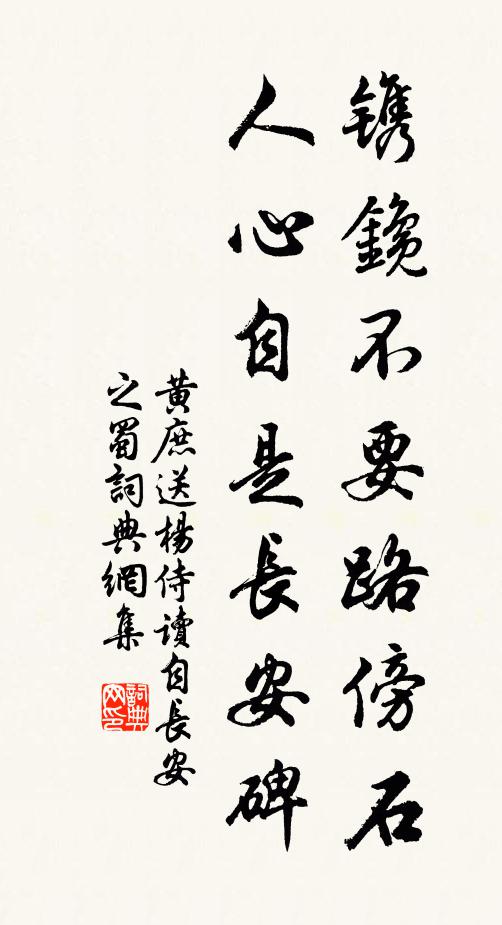 镌鑱不要路傍石
人心自是長安碑
黃庶送楊侍讀自長安
之蜀詞典網集
詞典网印